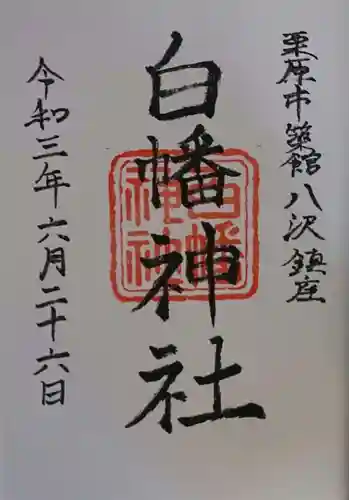 栗原市築館八沢鎮座
白幡神社
令和三年六月二十六日